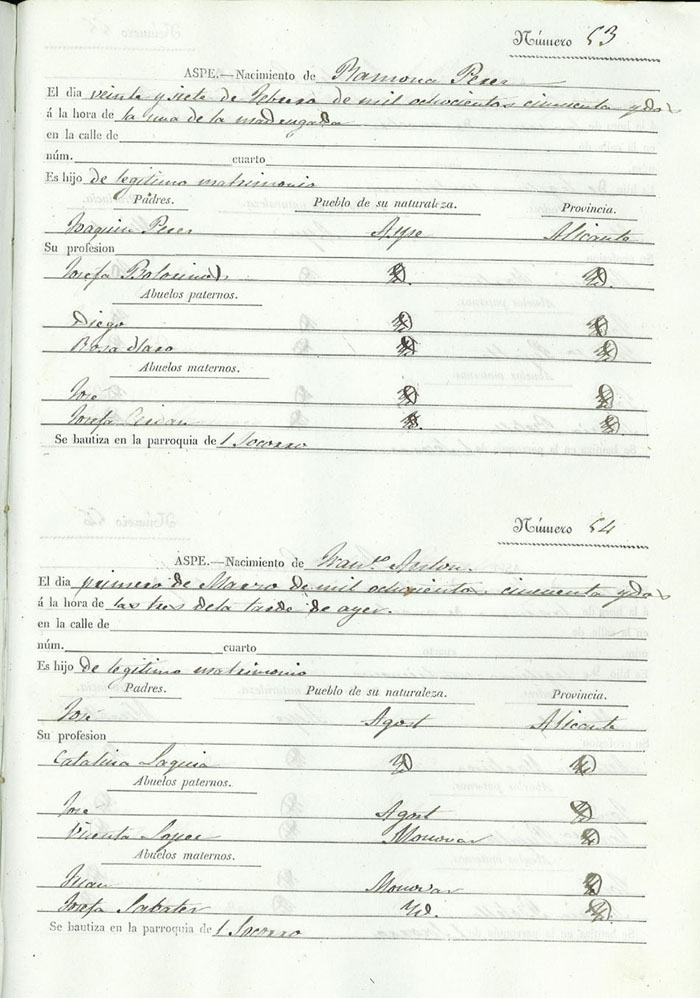 Número 53
ASPE.—Nacimiento de Ramona Peres
El dia veinte y siete de Febrero de mil ochocientos cincuenta y dos
á la hora de la una de la madrugada
en la calle de
núm. cuarto
Es hijo de legitimo matrimonio
Padres. Pueblo de su naturaleza. Provincia.
Joaquin Peres Aspe Alicante
Su profesion
Josefa Yd. Yd.
Abuelos paternos.
Diego Yd. Yd.
Rosa Yd. Yd.
Abuelos maternos.
José Yd. Yd.
Josefa Yd. Yd.
Se bautiza en la parroquia de l Socorro
Número 54
ASPE.—Nacimiento de Franco. Anton.
El dia primero de Marzo de mil ochocientos cincuenta y dos
á la hora de las tres de la tarde de ayer.
en la calle de
núm. cuarto
Es hijo de legitimo matrimonio
Padres. Pueblo de su naturaleza. Provincia.
José Agost Alicante
Su profesion
Catalina Yd Yd
Abuelos paternos.
José Agost Yd
Vicenta Monovar Yd
Abuelos maternos.
Juan Monovar Yd
Josefa Sabater Yd. Yd.
Se bautiza en la parroquia de l Socorro